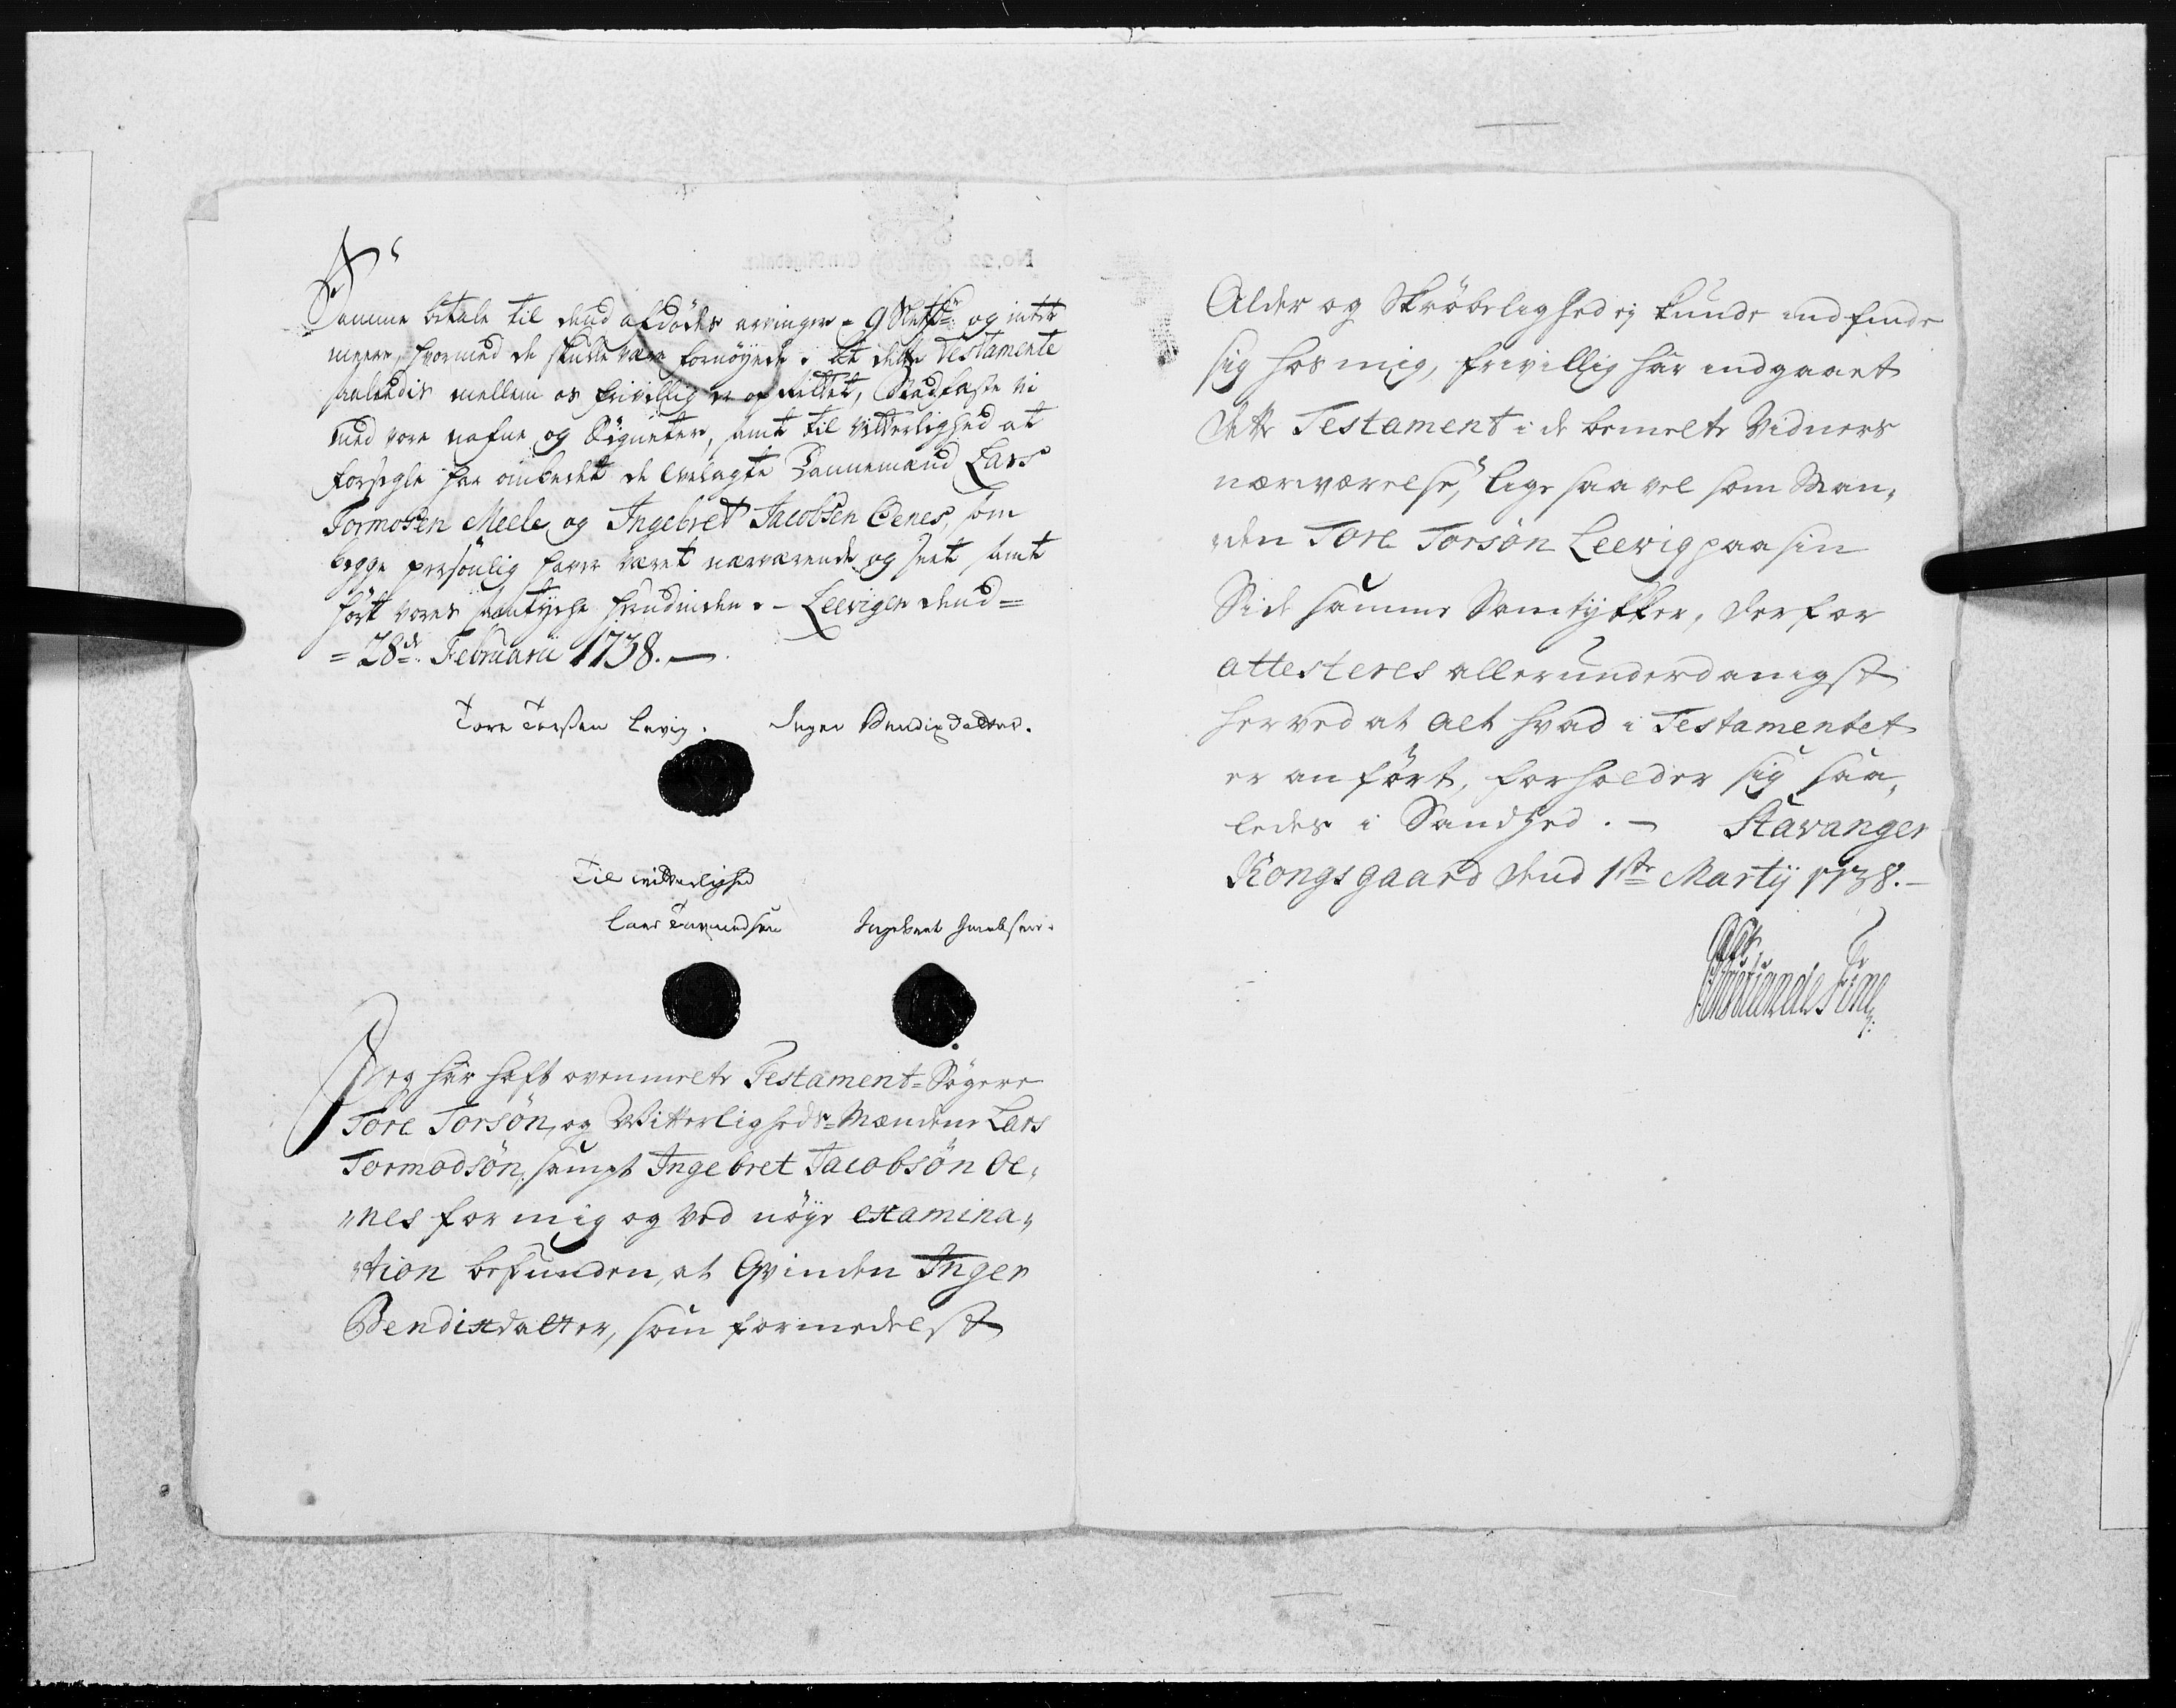 Samme betale til dend afdødes arvinger = 9 Slettdr og intet
meere, hvormed de skulle være fornøyede. At dette Testamente
saaledis mellem os frivillig er oprettet, Stadfæste vi
med vore nafne og Signeter, samt til Vitterlighed at
forsegle har ombedet de velagte Dannemænd Lars
Tormosen Meele og Ingebret Jacobsen Oenes, som
begge persønlig haver været nærværende og seet samt
hørt vores samtyche herudinden. - Leevigen dend =
= 28de. Februarii 1738. —
Tore Torsen Levig. Inger Bendixdatter.
Til vitterlighed
Lars Tormodsen Ingebret Jacobsen.
Jeg har haft ovenmelte Testament=Søgere
Tore Torsøn, og Vitterligheds=Mændene Lars
Tormodsøn, sampt Ingebret Jacobsøn Oe„
„nes for mig og ved nøye examina„
„tion befunden, at Qvinden Inger
Bendixdatter, som formedelst
Alder og Skrøbelighed ej kunde indfinde
sig hos mig, frivillig har indgaaet
dette Testament i de bemelte Vidners
nærværelse, lige saa vel som Man„
„den Tore Torsøn Leevig paa sin
Side samme Samtykker, derfor
attesteres allerunderdanigst
herved at alt hvad i Testamentet
er anført, forholder sig saa„
ledes i Sandhed. — Stavanger
Kongsgaard dend 1ste Martij 1738. —
de Fine